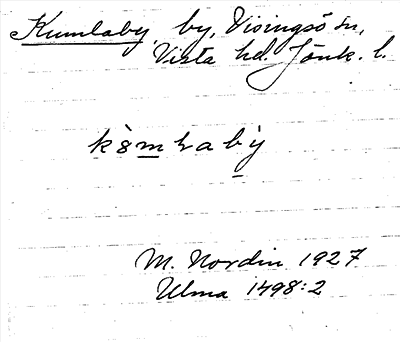 Kumlaby, by, Visingsö sn,
Vista hd. Jönk. l.
M. Nordin 1927
Ulma 1498:2